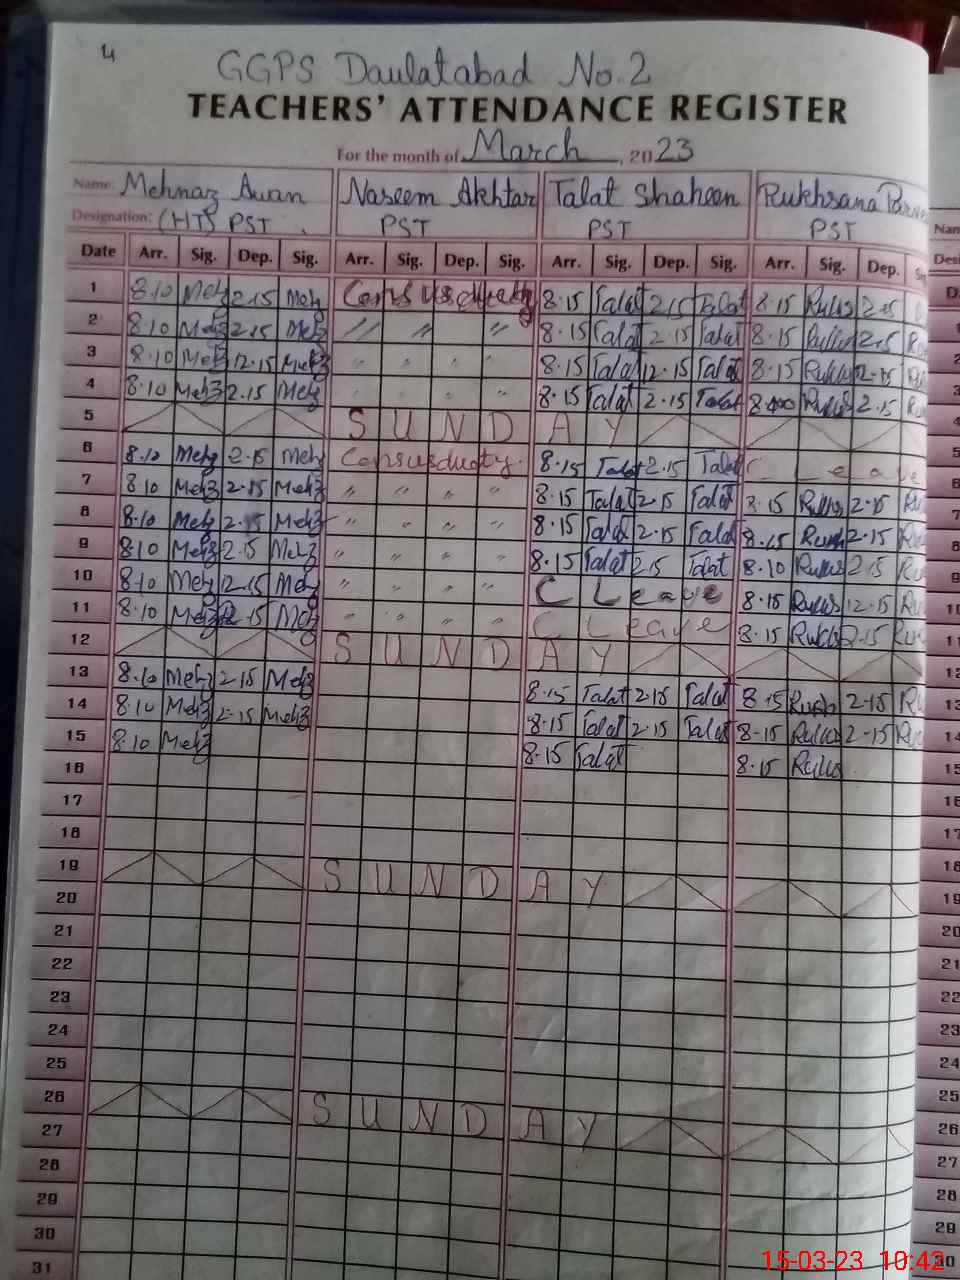 4
GGPS Daulatabad No.2
TEACHERS' ATTENDANCE REGISTER
For the month of March, 2023
Name: Mehnaz Awan Naseem Akhtar Talat Shaheen Rukhsana
Designation: (HT) PST PST PST PST
Date Arr. Sig. Dep. Sig. Arr. Sig. Dep. Sig. Arr. Sig. Dep. Sig. Arr. Sig. Dep.
1 8.10 Mehz 2.15 Mehz 8.15 Talat 2.15 Talat 8.15 Rukhs 2.15
2 8.10 Mehz 2.15 Mehz " " " 8.15 Talat 2.15 Talat 8.15 Rukhs 2.15
3 8.10 Mehz 12.15 Mehz " " " " 8.15 Talat 12.15 Talat 8.15 Rukhs 2.15
4 8.10 Mehz 2.15 Mehz " " " " 8.15 Talat 2.15 Talat Rukhs 2.15
5 S U N D A Y
6 8.10 Mehz 2.15 Mehz Consusduaty 8.15 Talat 2.15 Talat C Leave
7 8.10 Mehz 2.15 Mehz " " " " 8.15 Talat 2.15 Talat 8.15 Rukhs 2.15
8 8.10 Mehz 2.15 Mehz " " " " 8.15 Talat 2.15 Talat 8.15 Rukh 2.15
9 8.10 Mehz 2.15 Mehz " " " " 8.15 Talat 2.15 Talat 8.10 Rukhs 2.15
10 8.10 Mehz 12.15 Mehz " " " " C Leave 8.15 Rukhs 12.15
11 8.10 Mehz 2.15 Mehz " " " " C Leave 8.15 Rukhs 2.15
12 S U N D A Y
13 8.10 Mehz 2.15 Mehz 8.15 Talat 2.15 Talat 8.15 Rukh 2.15
14 8.10 Mehz 2.15 Mehz 8.15 Talat 2.15 Talat 8.15 Rukhs 2.15
15 8.10 Mehz 8.15 Talat 8.15 Rukhs
16
17
18
19 S U N D A Y
20
21
22
23
24
25
26 S U N D A Y
27
28
29
30
31
15-03-23 10:42